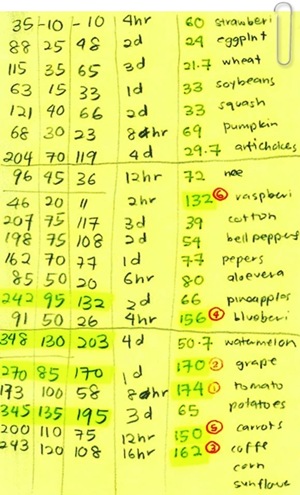 35 -10 -10 4hr 60 strawberi
88 25 48 2d 24 eggplnt
115 35 65 3d 21.7 wheat
63 15 33 1d 33 soybeans
121 40 66 2d 33 squash
68 30 23 8hr 69 pumpkin
204 70 119 4d 29.7 artichokes
96 45 36 12hr 72
46 20 11 2hr 132 ⑥ raspberi
207 75 117 3d 39 cotton
198 75 108 2d 54 bell peppers
162 70 77 1d 77 pepers
85 50 20 6hr 80 aloevera
242 95 132 2d 66 pineapples
91 50 26 4hr 156 ④ bluoberi
348 130 203 4d 50.7 watermelon
270 85 170 1d 170 ② grape
193 100 58 8hr 174 ① tomato
345 135 195 3d 65 potatoes
200 110 75 12hr 150 ⑤ carrots
243 120 108 16hr 162 ③ coffe
corn
sunflowe